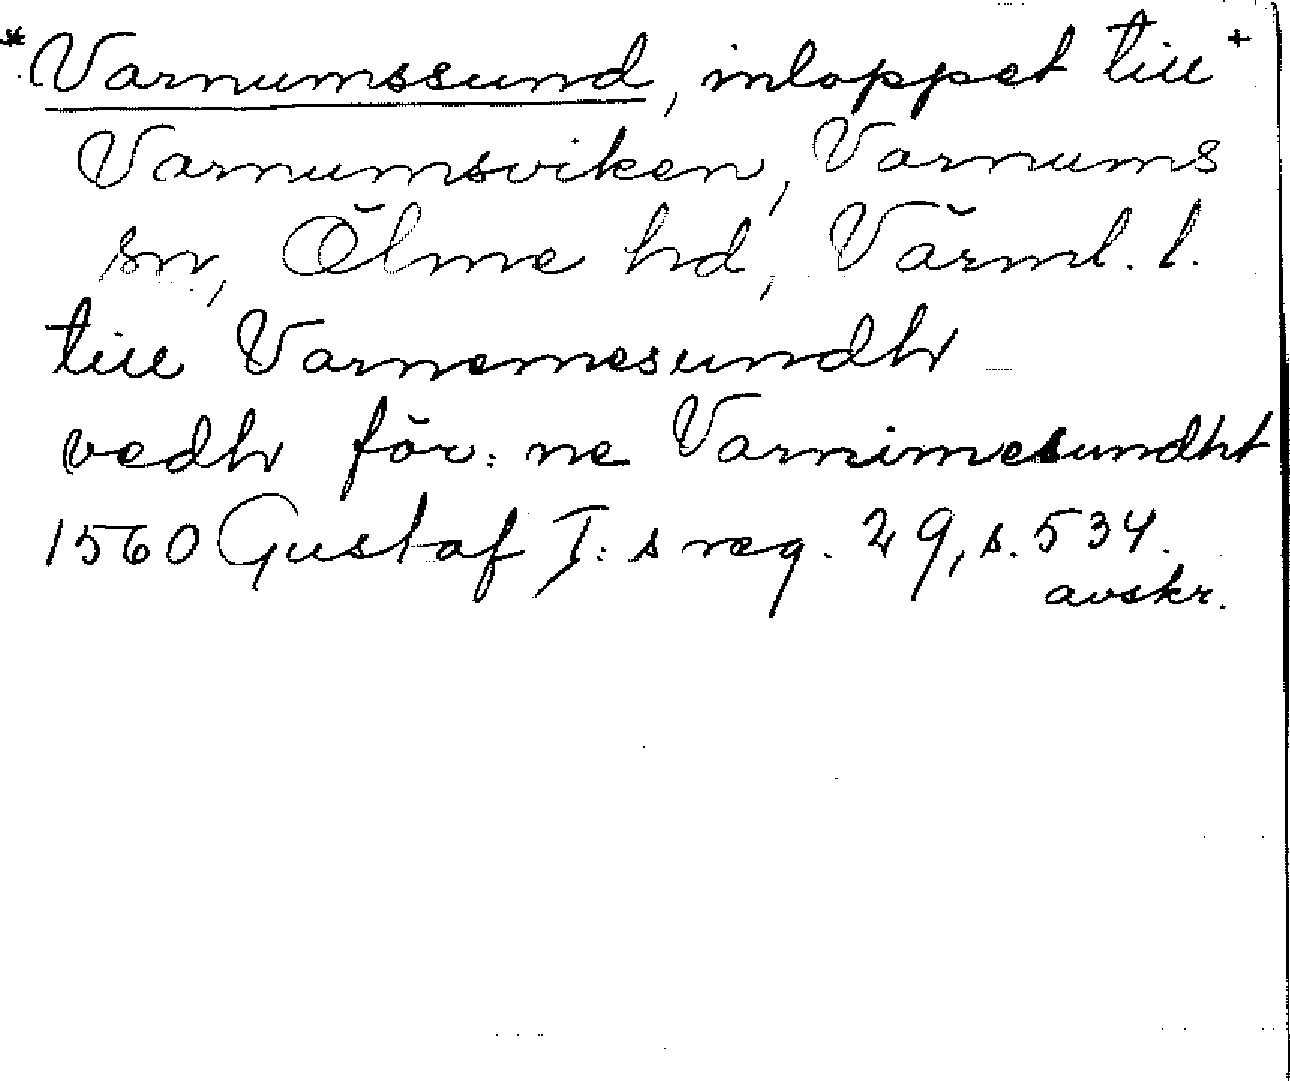 *Varnumssund, inloppet till +
Varnumsviken, Varnums
sn, Ölme hd, Värml. l.
till Varnemesundh
vedh för: ne Varnimesundht
1560 Gustaf I:s reg. 29, s. 534.
avskr.